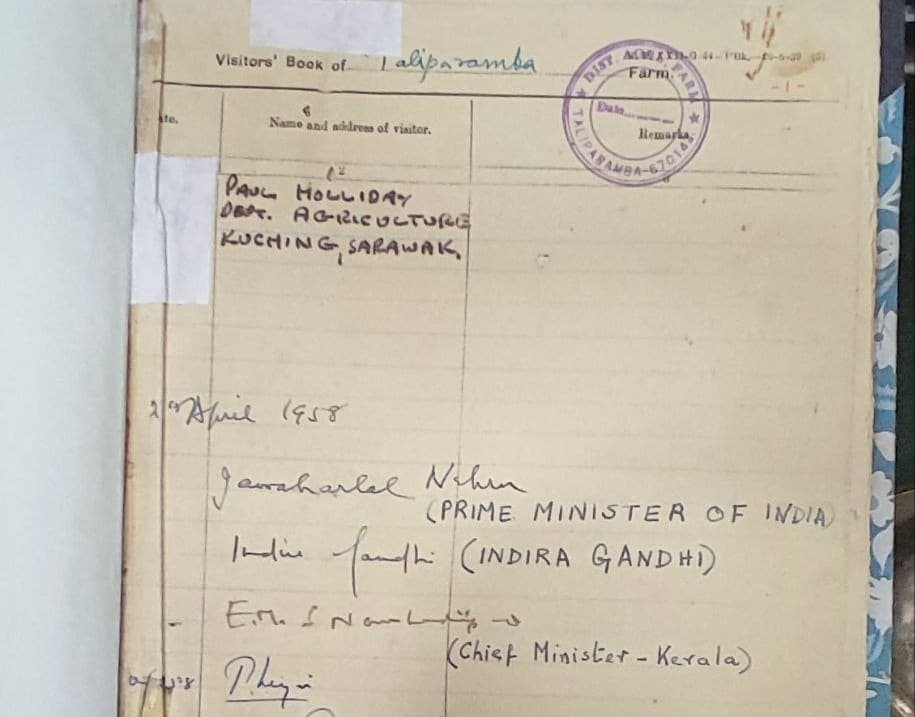 Visitors' Book of Taliparamba
Farm.
DIST. AGRI. FARM
TALIPARAMBA-670142
Date
-1-
Name and address of visitor.
Remarks.
PAUL HOLLIDAY
DEPT. AGRICULTURE
KUCHING, SARAWAK,
April 1958
Jawaharlal Nehru
(PRIME MINISTER OF INDIA)
Indira Gandhi (INDIRA GANDHI)
E.M. S
(Chief Minister - Kerala)